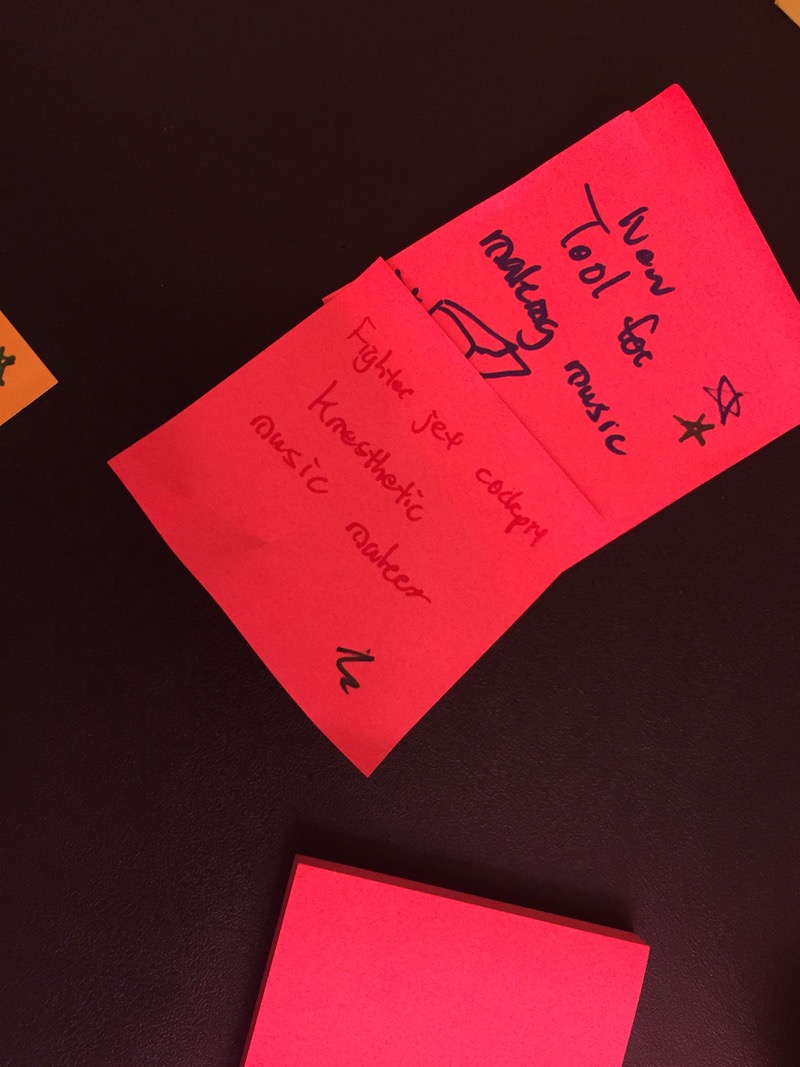 New
Tool for
making music
Fighter jet cockpit
Kinesthetic
music maker